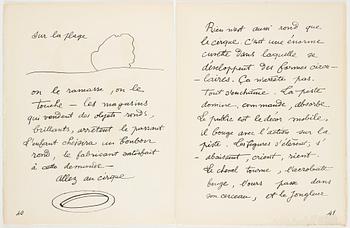 sur la plage
on le ramasse, on le
touche — les magasins
qui vendent des objets ronds,
brillants, arrêtent le passant
L'enfant choisira un bonbon
rond, le fabricant satisfait
à cette demande —
Allez au cirque
40
Rien n'est aussi rond que
le cirque. C'est une énorme
cuvette dans laquelle se
développent des formes circu-
-laires. Ça n'arrête pas.
Tout s'enchaîne. La piste
domine, commande, absorbe.
Le public est le décor mobile,
il bouge avec l'action sur la
piste. Les figures s'élèvent, s'
abaissent, crient, rient.
Le cheval tourne, l'acrobate
bouge, l'ours passe dans
son cerceau, et le jongleur
41